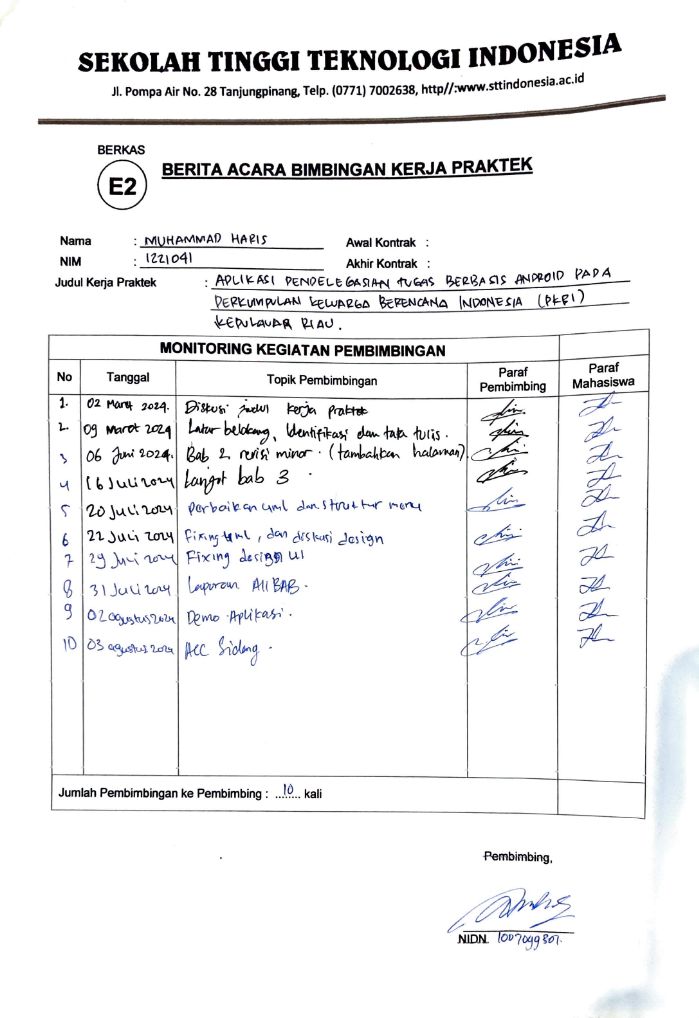 SEKOLAH TINGGI TEKNOLOGI INDONESIA
Jl. Pompa Air No. 28 Tanjungpinang, Telp. (0771) 7002638, http//:www.sttindonesia.ac.id
BERKAS
E2
BERITA ACARA BIMBINGAN KERJA PRAKTEK
Nama : MUHAMMAD HARIS Awal Kontrak :
NIM : 1221041 Akhir Kontrak :
Judul Kerja Praktek : APLIKASI PENDELEGASIAN TUGAS BERBASIS ANDROID PADA
PERKUMPULAN KELUARGA BERENCANA INDONESIA (PKBI)
KEPULAUAN RIAU.
MONITORING KEGIATAN PEMBIMBINGAN
No Tanggal Topik Pembimbingan Paraf Pembimbing Paraf Mahasiswa
1. 02 Maret 2024. Diskusi judul kerja praktek
2. 09 Maret 2024 Latar belakang, Identifikasi dan tata tulis.
3 06 Juni 2024. Bab 2 revisi minor. (tambahkan halaman)
4 16 Juli 2024 Langut bab 3
5 20 Juli 2024 perbaikan uml dan struktur menu
6 22 Juli 2024 Fixing uml, dan diskusi design
7 29 Juli 2024 Fixing design UI
8 31 Juli 2024 Laporan All BAB.
9 02 agustus 2024 Demo Aplikasi.
10 03 agustus 2024 ACC Sidang.
Jumlah Pembimbingan ke Pembimbing : 10 kali
Pembimbing,
NIDN. 1007099307.